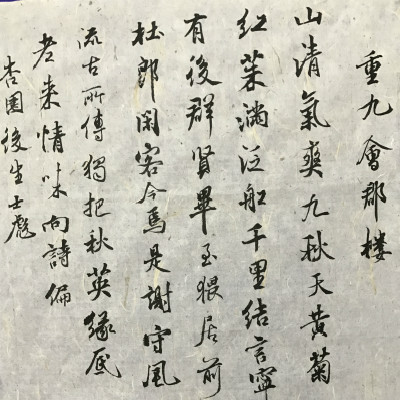 重九會郡樓
山清氣爽九秋天黃菊
紅茱滿泛船千里結言寧
有後群賢畢至猥居前
杜郎閑客今焉是謝守風
流古所傳獨把秋英緣底
老來情味向詩偏
杏園後生士彪